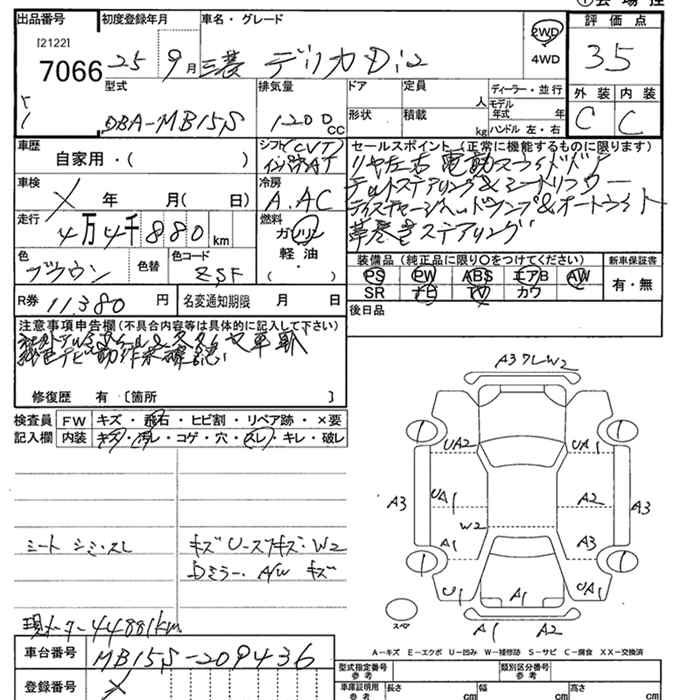 出品番号 初度登録年月 車名・グレード 評価点
[2122]
7066 25 9月 三菱 デリカ D:2 2WD 4WD 35
型式 排気量 ドア 定員 人 ディーラー・並行 外装 内装
DBA-MB15S 1200 CC 形状 積載 kg モデル年式 年 C C
ハンドル 左・右
車歴 シフト CVT セールスポイント (正常に機能するものに限ります)
自家用・( ) インパネAT リヤ左右電動スライドドア
車検 冷房 チルトステアリング&シートリフター
X 年 月( 日) A.AC ディスチャージヘッドランプ&オートライト
走行 燃料 革巻きステアリング
4万4千880km ガソリン
軽油・
( )
色 色替 色コード
ブラウン ZSF
装備品 (純正品に限り○をつけてください) 新車保証書
PS PW ABS エアB AW 有・無
SR ナビ TV カワ
R券 11,380 円 名変通知期限 月 日
後日品
注意事項申告欄(不具合内容等は具体的に記入して下さい)
修復歴 有 [箇所 ]
検査員 FW キズ・飛石・ヒビ割・リペア跡・×要
記入欄 内装 キズ・汚レ・コゲ・穴・スレ・キレ・破レ
シート シミ・スレ キズ Uースアキズ・W2
Dミラー・A/W キズ
現メーター44881km
車台番号 MB15S-209436
登録番号 X
A3 フレ W2
UA2 UA1
A3 UA1 A2 A3
W2
A1 A3
U1 A1 UA1
スペア A1 A2
A-キズ E-エクボ U-凹み W-補修跡 S-サビ C-腐食 XX-交換済
型式指定番号 参考 類別区分番号 参考
車庫証明用 参考 長さ cm 幅 cm 高さ cm